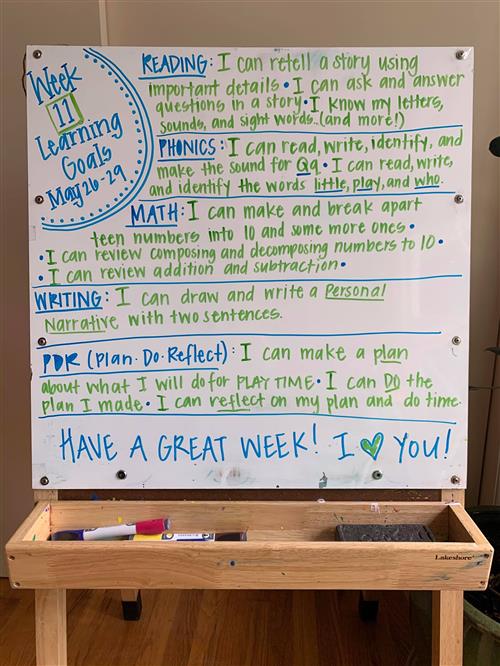 Week
11
Learning
Goals
May 26-29
READING: I can retell a story using
important details • I can ask and answer
questions in a story • I know my letters,
sounds, and sight words...(and more!)
PHONICS: I can read, write, identify, and
make the sound for Qq • I can read, write,
and identify the words little, play, and who.
MATH: I can make and break apart
teen numbers into 10 and some more ones •
• I can review composing and decomposing numbers to 10 •
• I can review addition and subtraction •
WRITING: I can draw and write a Personal
Narrative with two sentences.
PDR (Plan • Do • Reflect): I can make a plan
about what I will do for PLAY TIME • I can DO the
plan I made • I can reflect on my plan and do time.
HAVE A GREAT WEEK! I ♥ YOU!
Lakeshore